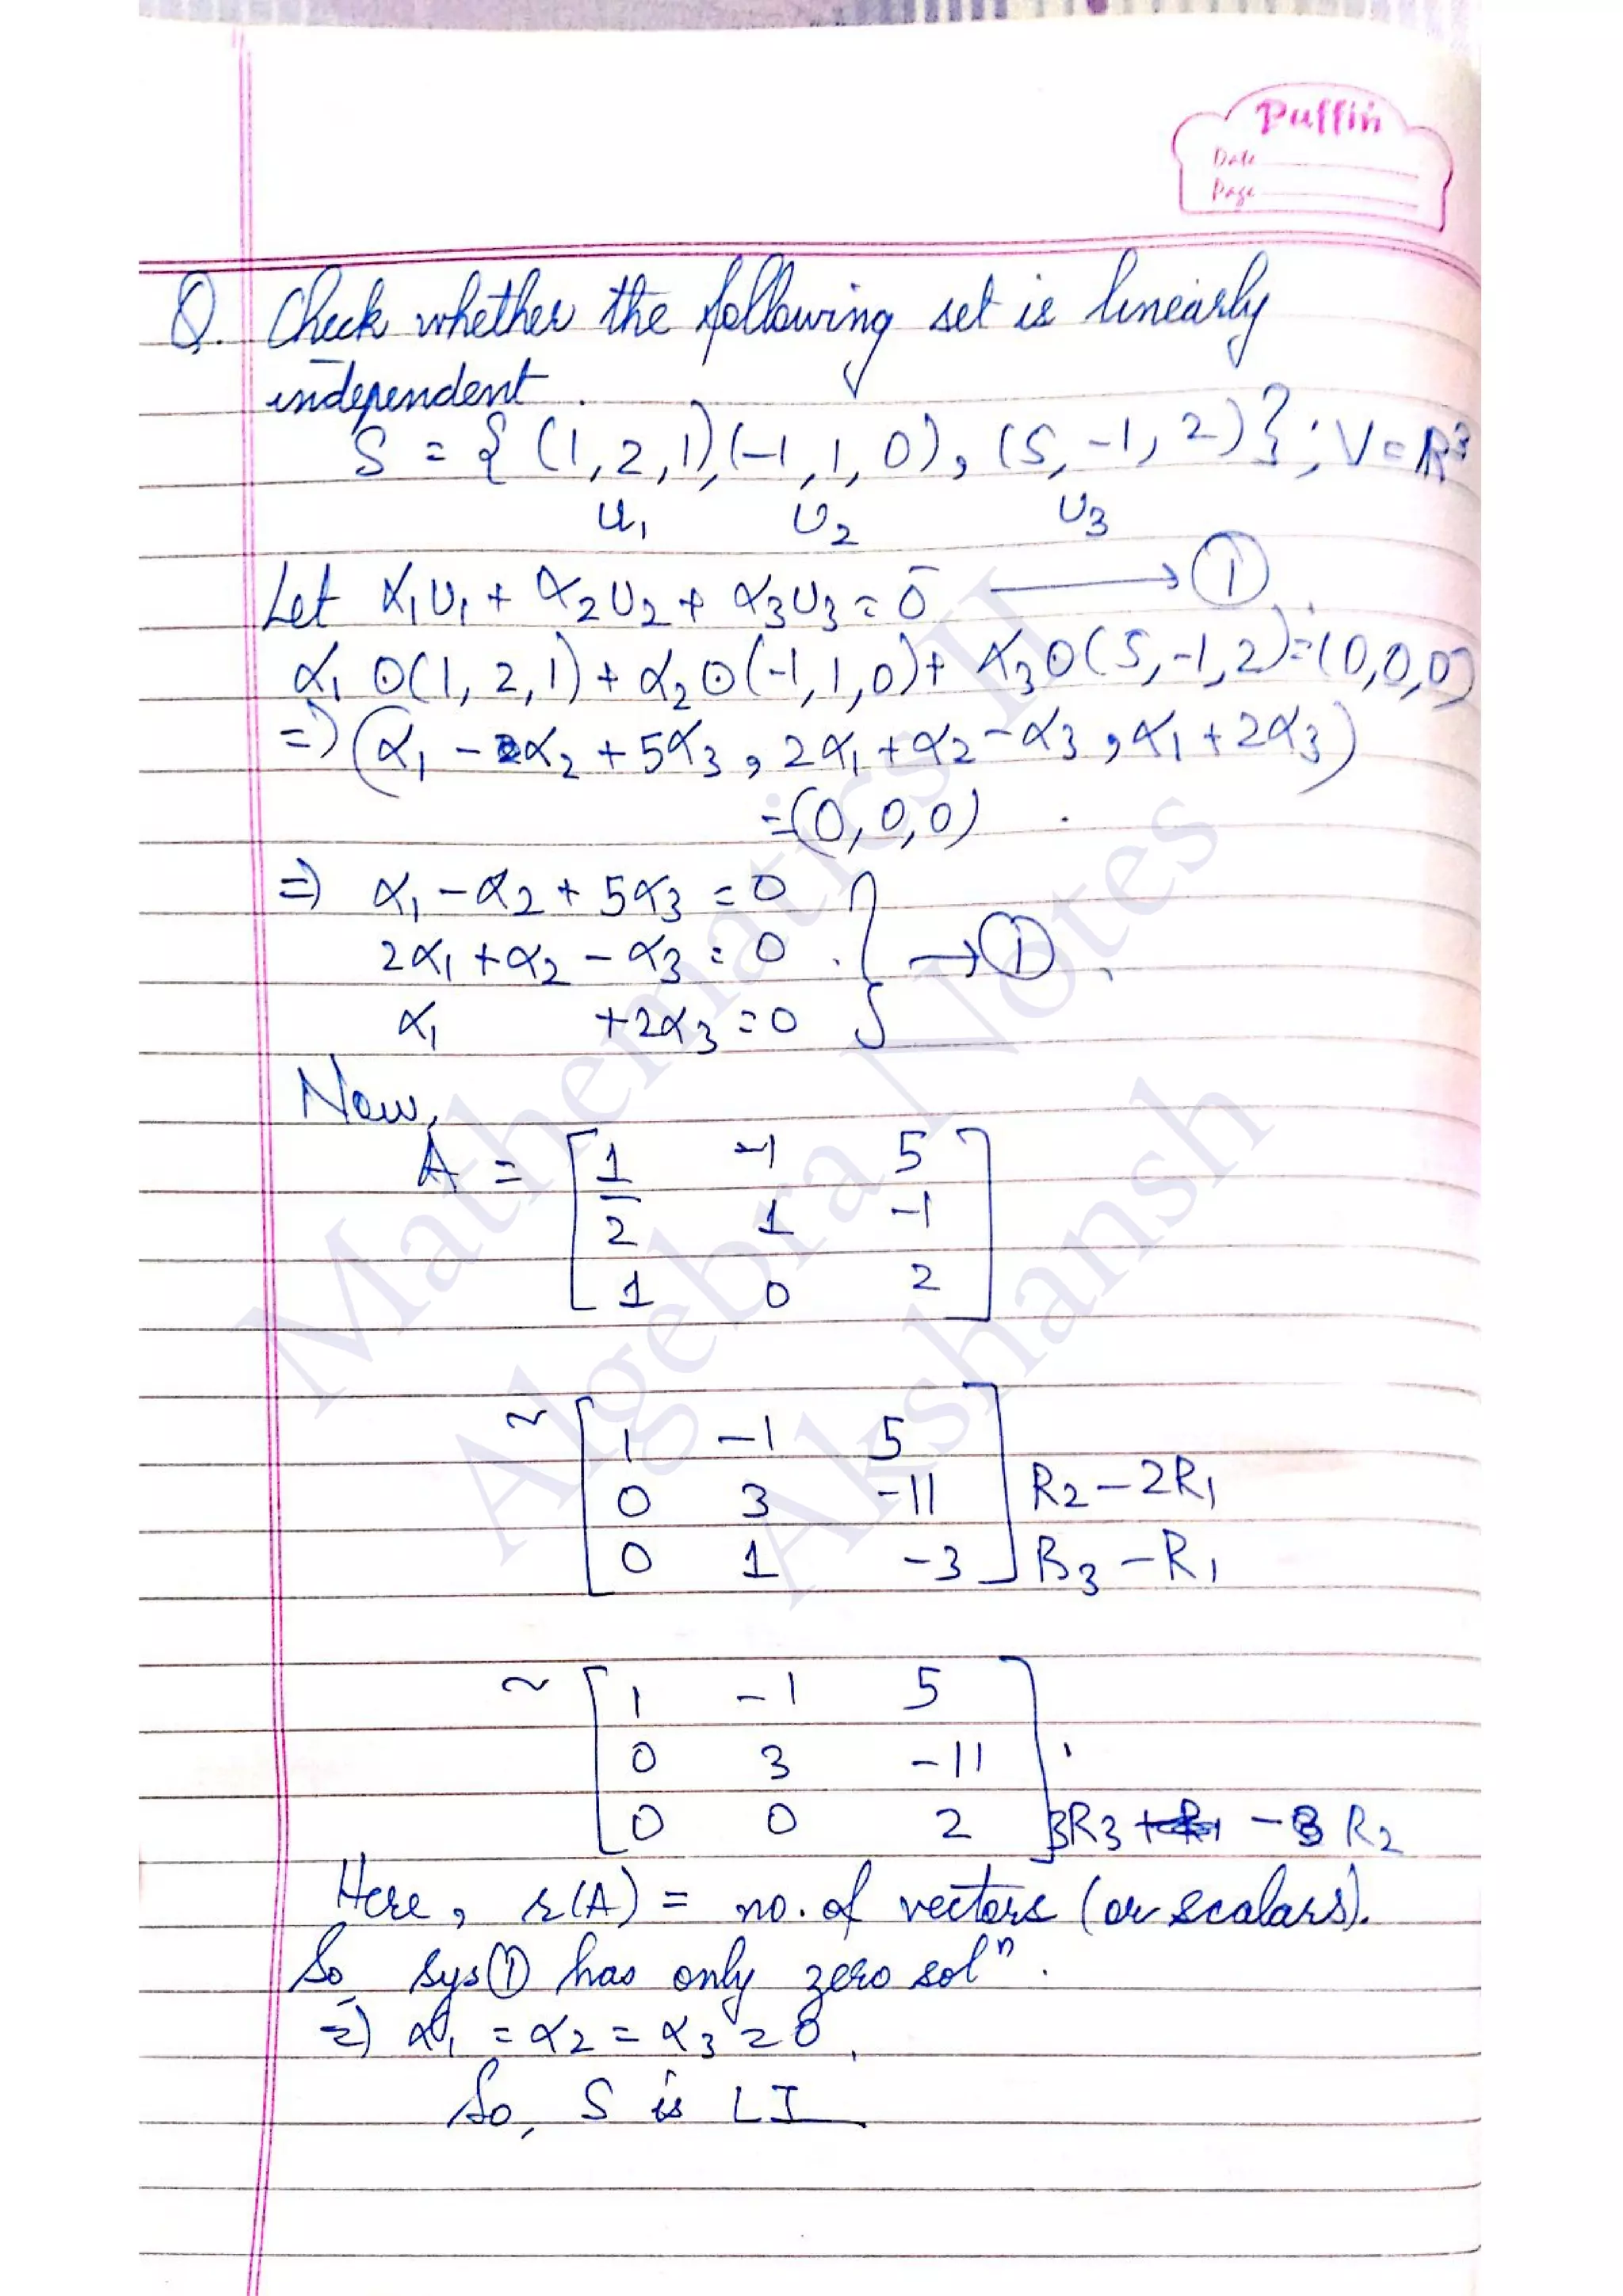 Puffin
Date
Page
Q. Check whether the following set is linearly
independent.
S = { (1, 2, 1), (-1, 1, 0), (5, -1, 2) } ; V = R³
u₁ u₂ u₃
Let α₁u₁ + α₂u₂ + α₃u₃ = 0̄ → ①
α₁ ⊙ (1, 2, 1) + α₂ ⊙ (-1, 1, 0) + α₃ ⊙ (5, -1, 2) = (0, 0, 0)
⇒ (α₁ - α₂ + 5α₃, 2α₁ + α₂ - α₃, α₁ + 2α₃)
= (0, 0, 0)
⇒ α₁ - α₂ + 5α₃ = 0
2α₁ + α₂ - α₃ = 0 } → ①
α₁ + 2α₃ = 0
Now,
A = [ 1 -1 5
2 1 -1
1 0 2 ]
~ [ 1 -1 5
0 3 -11 R₂ - 2R₁
0 1 -3 ] R₃ - R₁
~ [ 1 -1 5
0 3 -11
0 0 2 ] 3R₃ - R₂
Here, r(A) = no. of vectors (or scalars).
So, sys ① has only zero solⁿ.
⇒ α₁ = α₂ = α₃ = 0.
So, S is LI
Mathematics II
Algebra Notes
Akshansh